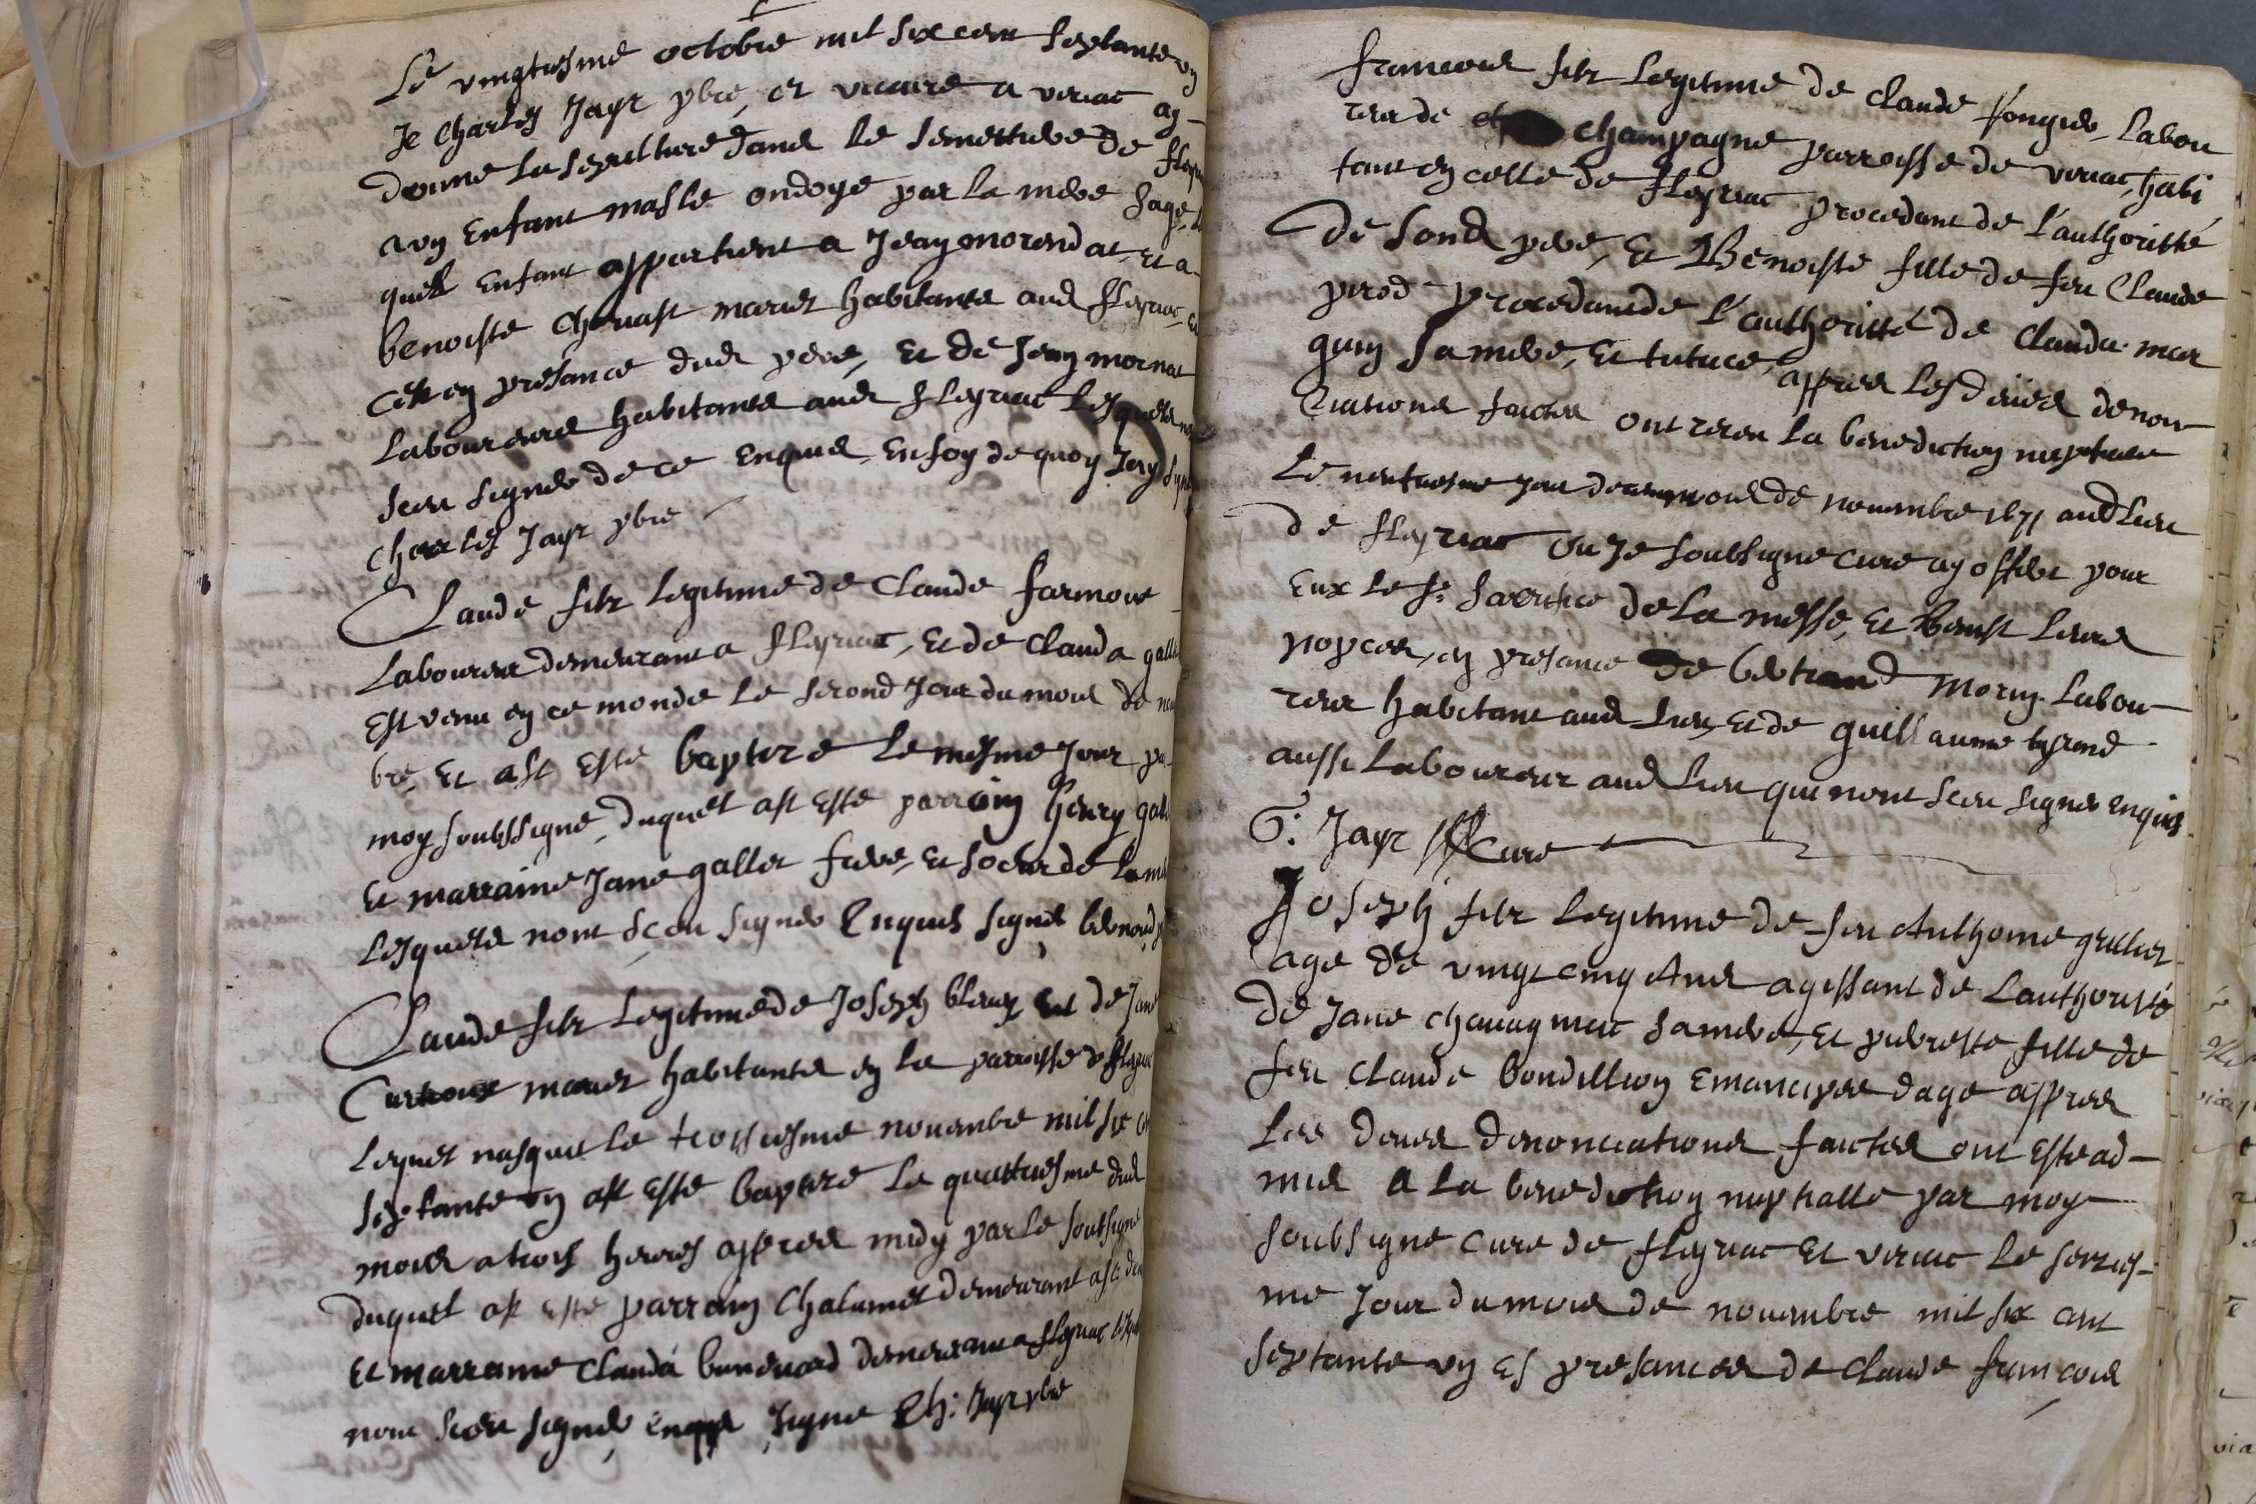 Le vingtiesme octobre mil six cent septante un
Je Charles Jayr pbre, et vicaire a veriac ay
donne la sepulture dans le semettiere de fleyriac
a un Enfant masle ondoye par la mere sage,
quel Enfant appartient a Jean morendat, Et a
benoiste Chevast mariez habitants aud fleyriac, et
cest en presance dud pere, Et de Jean mornat
Laboureurs habitants aud fleyriac Lesquels nont
sceu signer de ce Enquis, En foy de quoy Jay signé
Charles Jayr pbre
Claude filz Legitime de Claude farmour
Laboureur demeurant a fleyriac, Et de Clauda gallet
Est venu en ce monde Le second Jour du mois de
bre, Et ast Esté baptize Le mesme Jour par
moy soubssigné, duquel ast Esté parrain henry gallet
Et marraine Jane gallet frere, Et soeur de La mere
Lesquels nont sceu signer Enquis signé
Claude filz Legitime de Joseph bleux Et de Jane
Curtioux mariez habitants en la parroisse de fleyriac
Lequel nasquit Le troisiesme novembre mil six cent
septante un ast Esté baptizé Le quattriesme dud
mois a trois heures appres midy par Le soubsigné
duquel ast Esté parrain Chalumet demeurant
Et marraine Clauda demeurant a fleyriac
nont sceu signer enquis signe Ch: Jayr pbre
francois filz Legitime de Claude Labou
reur de champagne parroisse de veriac, habi
tant en celle de fleyriac procedant de l'authoritté
de sond pere, Et Benoiste fille de feu Claude
perod procedant de l'authoritté de Clauda mar
guin sa mere, Et tutrice, appres Les deües denon
ciations faictes ont receu la benediction nuptiale
Le neufviesme jour du mois de novembre 1671 aud Lieu
de fleyriac Ou Je soubsigné curé ay offert pour
Eux Le st sacrifice de La messe, Et benist Leurs
nopces, en presance de bertrand morin Labou
reur habitant aud Lieu, Et de guillaume
aussi Laboureur aud Lieu qui nont sceu signer enquis
G: Jayr Curé
Joseph filz Legitime de feu Anthoine grillet
age de vingt cinq Ans agissant de Lauthorité
de Jane chavagniat sa mere, Et pierrette fille de
feu Claude bondillion Emancipee dage appres
Les deues denonciations faictes ont Esté ad
mis A la benediction nuptialle par moy
soubsigné curé de fleyriac Et veriac Le seizies
me Jour du mois de novembre mil six cent
septante un Es presances de Claude francois